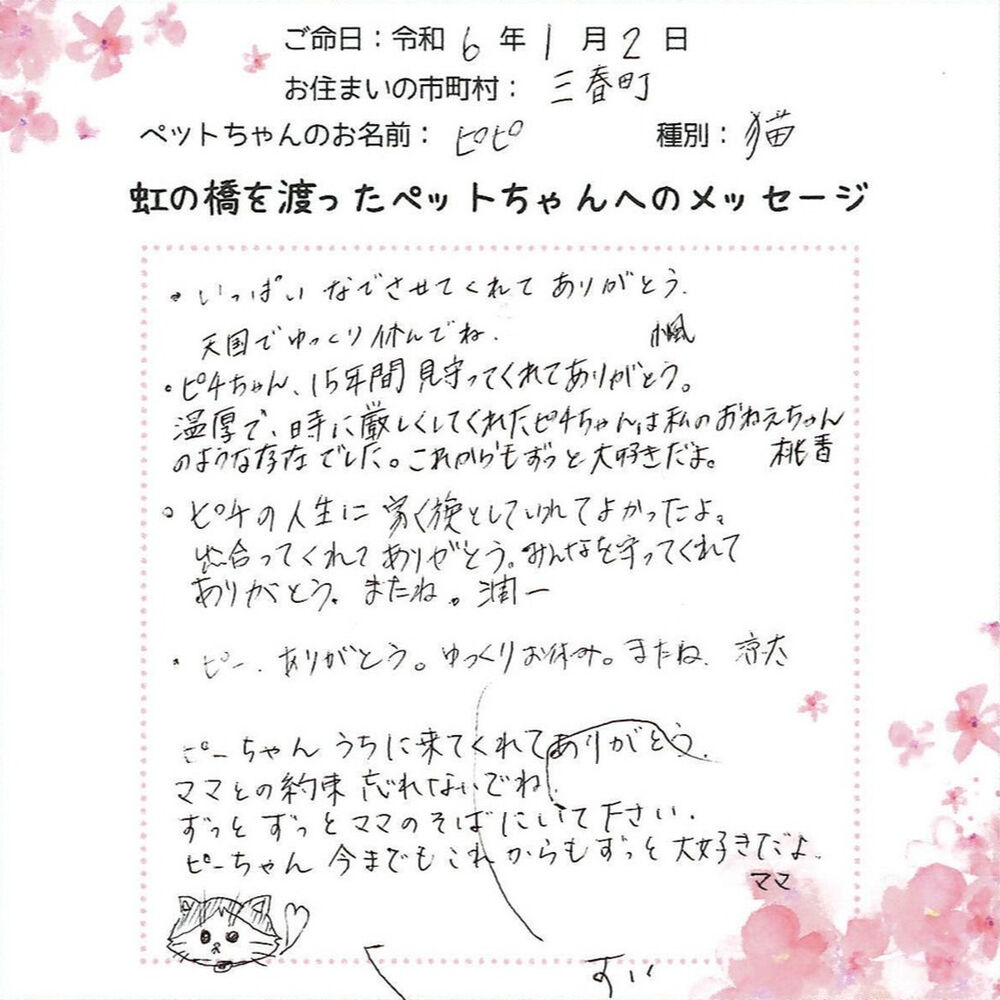 ご命日：令和 6 年 1 月 2 日
お住まいの市町村： 三春町
ペットちゃんのお名前： ピピ 種別： 猫
虹の橋を渡ったペットちゃんへのメッセージ
・いっぱい なでさせてくれて ありがとう.
天国でゆっくり休んでね. 楓
・ピチちゃん、15年間見守ってくれてありがとう。
温厚で、時に厳しくしてくれたピチちゃんは私のおねえちゃん
のような存在でした。これからもずっと大好きだよ。 桃香
○ピチの人生に 家く族としていれてよかったよ。
出合ってくれてありがとう。みんなを守ってくれて
ありがとう。またね。潤一
・ピー. ありがとう。ゆっくりお休み。またね. 涼太
ピーちゃん うちに来てくれてありがとう.
ママとの約束 忘れないでね.
ずっと ずっと ママのそばにいて下さい.
ピーちゃん 今までもこれからもずっと 大好きだよ.
ママ
すい